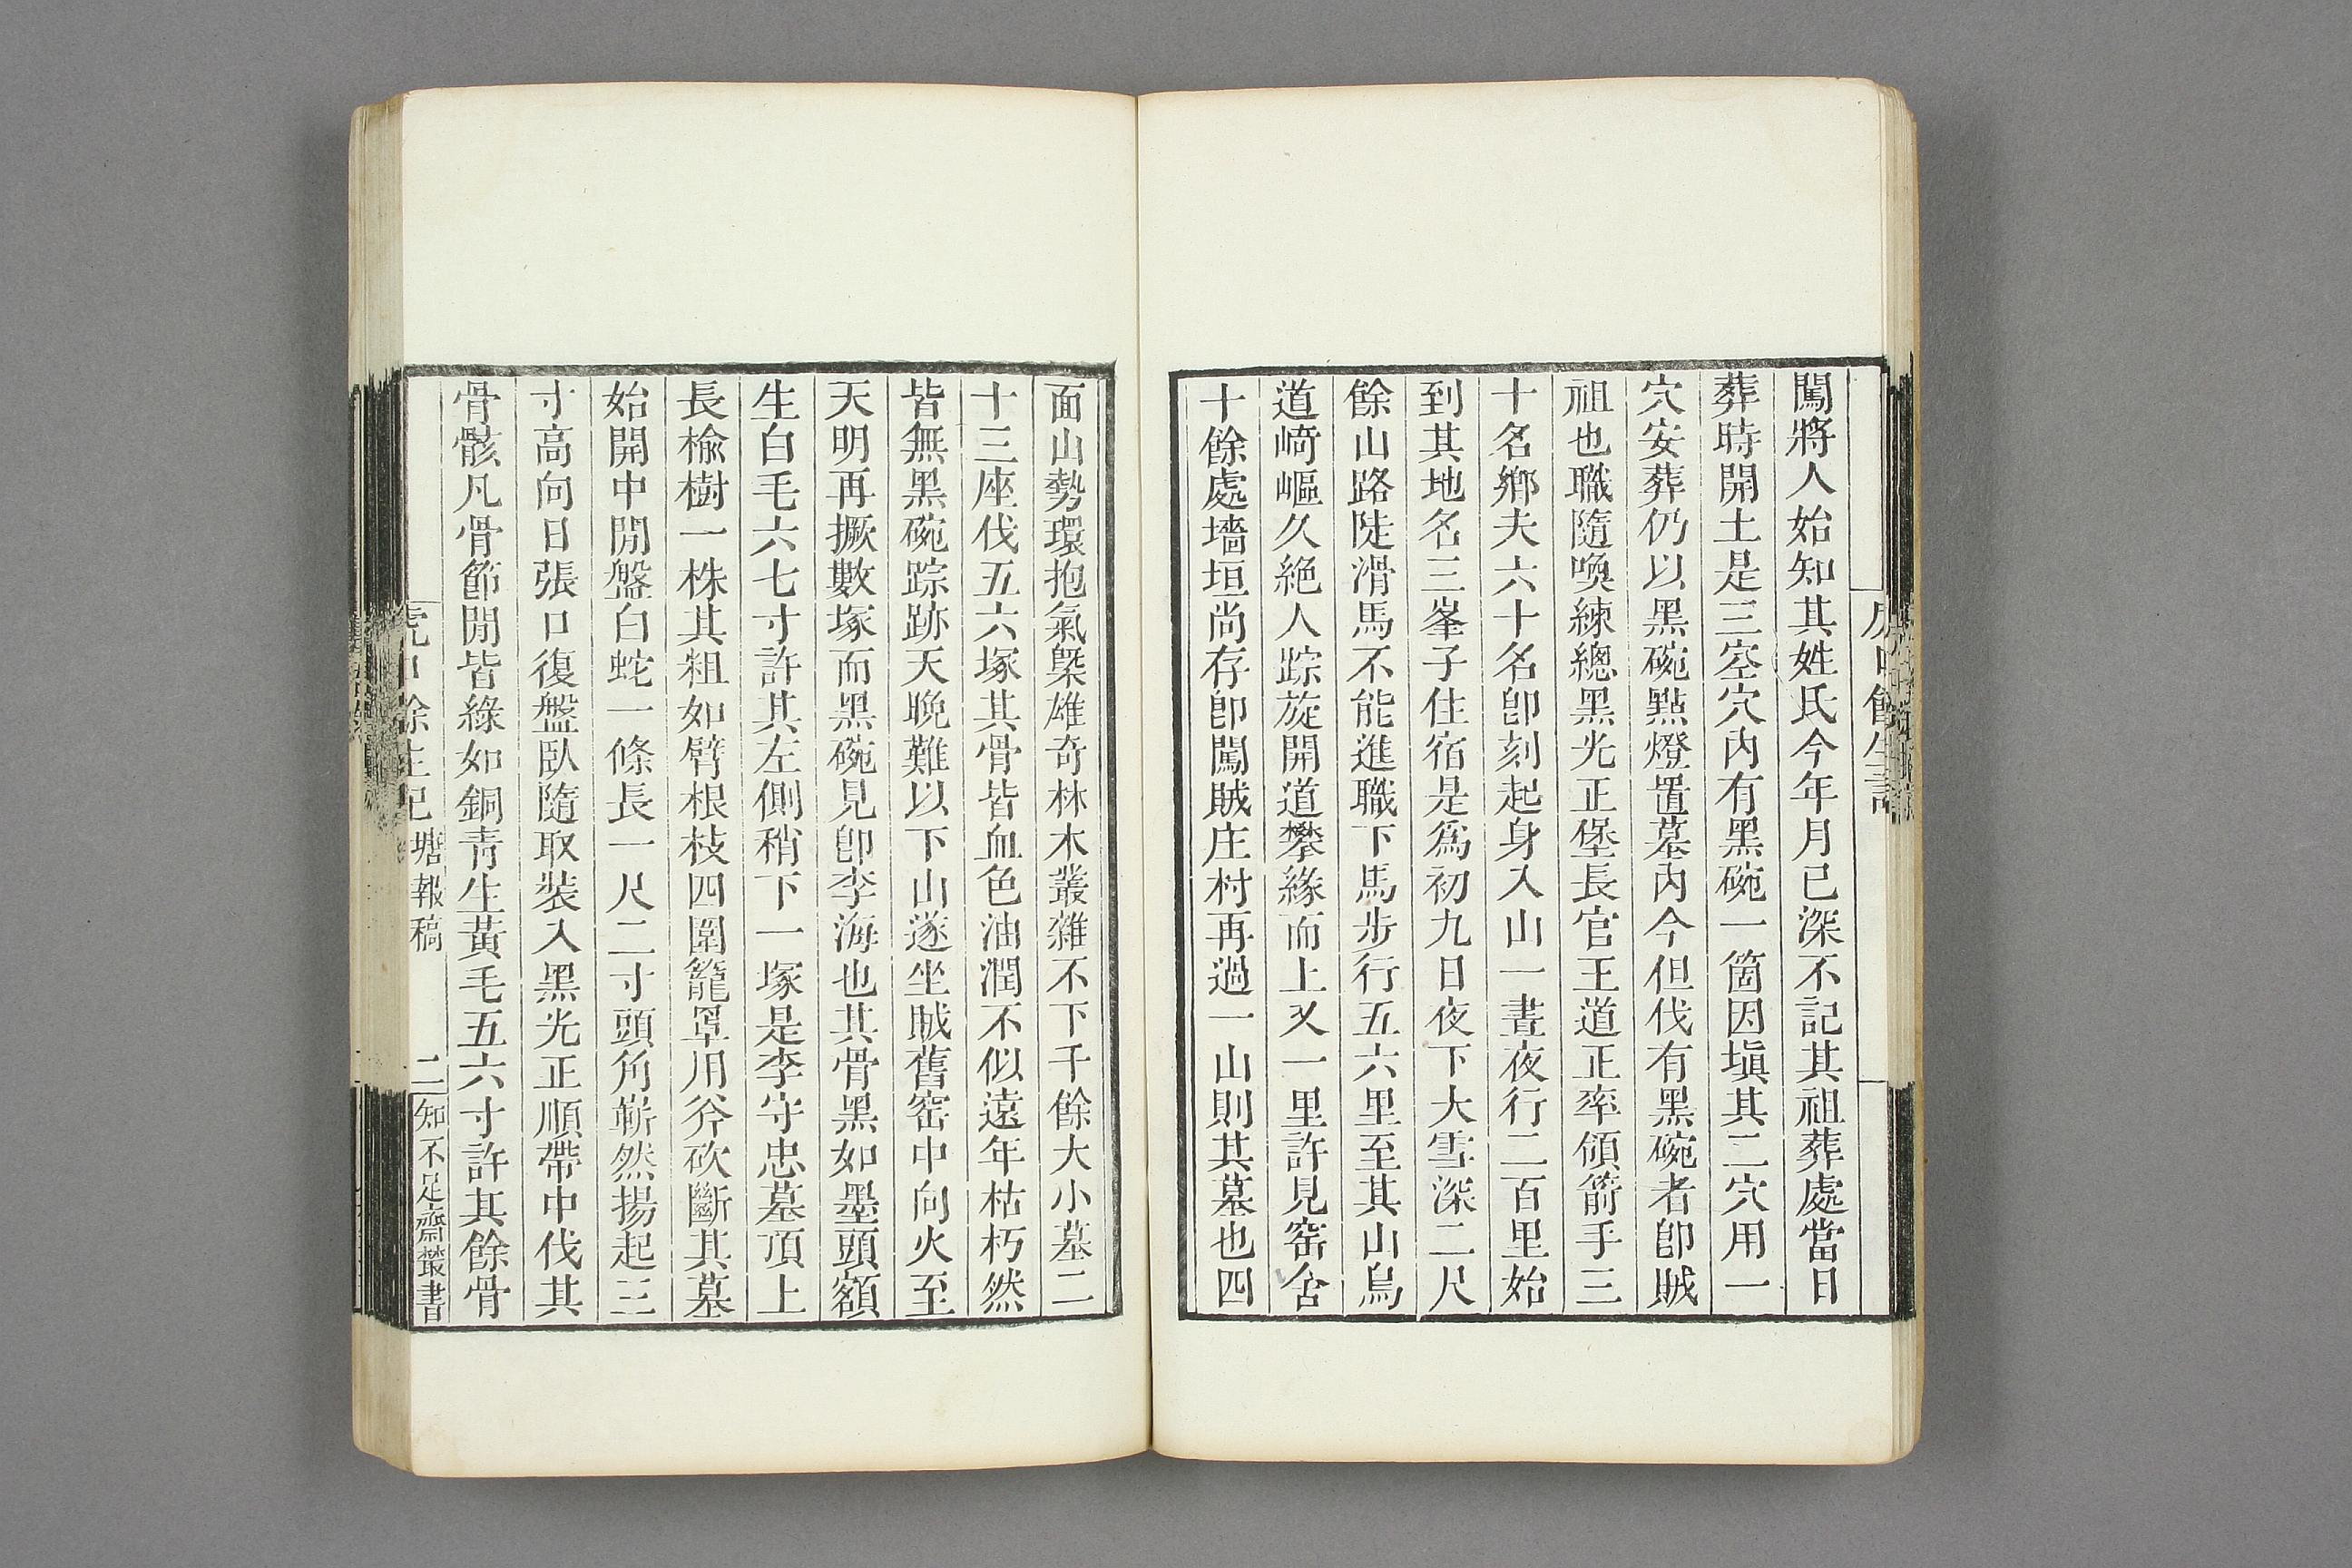 闖將人始知其姓氏今年月已深不記其祖葬處當日
葬時開土是三空穴內有黑碗一箇因塡其二穴用一
穴安葬仍以黑碗點燈置墓內今但伐有黑碗者卽賊
祖也職隨喚練總黑光正堡長官王道正率領箭手三
十名鄉夫六十名卽刻起身入山一晝夜行二百里始
到其地名三峯子住宿是爲初九日夜下大雪深二尺
餘山路陡滑馬不能進職下馬步行五六里至其山烏
道崎嶇久絕人踪旋開道攀緣而上又一里許見窰舍
十餘處墻垣尚存卽闖賊庄村再過一山則其墓也四
面山勢環抱氣槩雄奇林木叢雜不下千餘大小墓二
十三座伐五六塚其骨皆血色油潤不似遠年枯朽然
皆無黑碗踪跡天晚難以下山遂坐賊舊窰中向火至
天明再撅數塚而黑碗見卽李海也其骨黑如墨頭額
生白毛六七寸許其左側稍下一塚是李守忠墓頂上
長榆樹一株其粗如臂根枝四圍籠罩用斧砍斷其墓
始開中間盤白蛇一條長一尺二寸頭角嶄然揚起三
寸高向日張口復盤臥隨取裝入黑光正順帶中伐其
骨骸凡骨節間皆綠如銅青生黃毛五六寸許其餘骨
虎口餘生記 塘報稿 二 知不足齋叢書